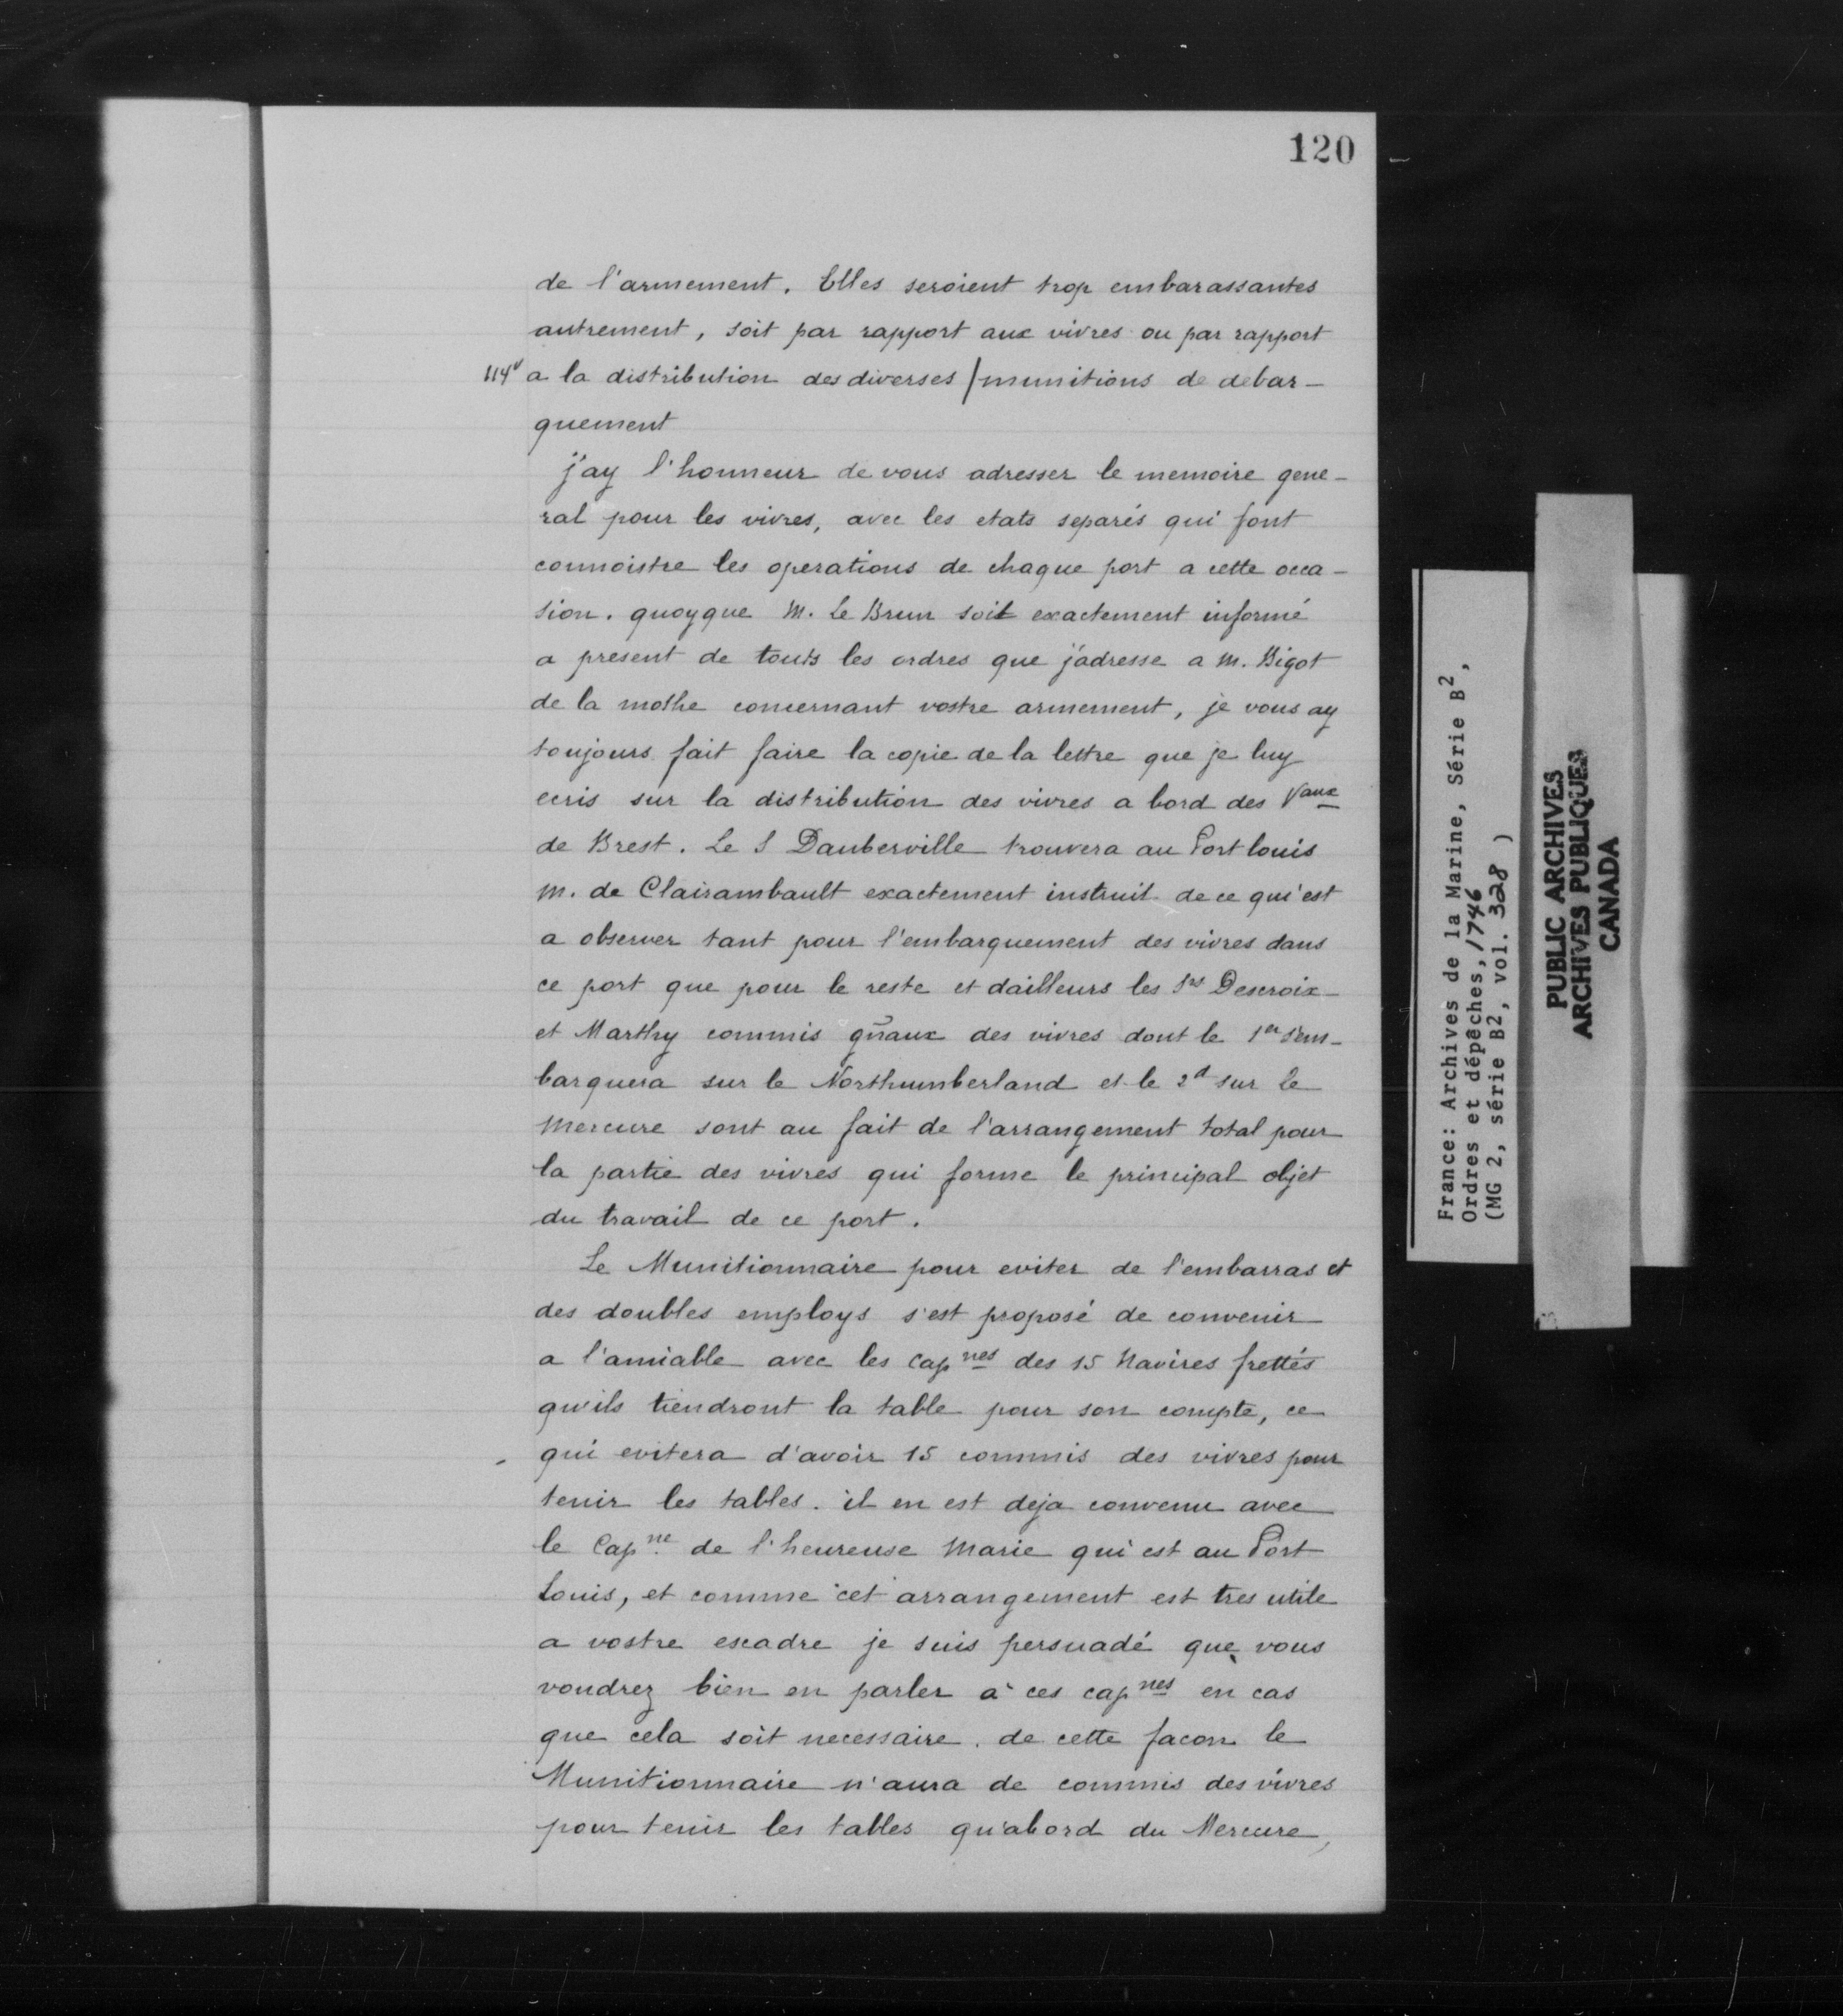 120
de l'armement. Elles seroient trop embarassantes
autrement, soit par rapport aux vivres ou par rapport
114v a la distribution des diverses / munitions de debar-
quement
j'ay l'honneur de vous adresser le memoire gene-
ral pour les vivres, avec les etats separés qui font
connoistre les operations de chaque port a cette occa-
sion. quoyque M. Le Brun soit exactement informé
a present de touts les ordres que j'adresse a M. Bigot
de la mothe concernant vostre armement, je vous ay
toujours fait faire la copie de la lettre que je luy
ecris sur la distribution des vivres a bord des Vaux
de Brest. Le S Dauberville trouvera au Port louis
M. de Clairambault exactement instruit de ce qui est
a observer tant pour l'embarquement des vivres dans
ce port que pour le reste et dailleurs les Srs Descroix
et Marthy commis gñaux des vivres dont le 1er s'em-
barquera sur le Northumberland et le 2d sur le
Mercure sont au fait de l'arrangement total pour
la partie des vivres qui forme le principal objet
du travail de ce port.
Le Munitionnaire pour eviter de l'embarras et
des doubles employs s'est proposé de convenir
a l'amiable avec les capnes des 15 Navires frettés
qu'ils tiendront la table pour son compte, ce
qui evitera d'avoir 15 commis des vivres pour
tenir les tables. il en est deja convenu avec
le Capne de l'heureuse Marie qui est au Port
Louis, et comme cet arrangement est tres utile
a vostre escadre je suis persuadé que vous
voudrez bien en parler à ces capnes en cas
que cela soit necessaire. de cette facon le
Munitionnaire n'aura de commis des vivres
pour tenir les tables qu'abord du Mercure,
France: Archives de la Marine, Série B2,
Ordres et dépêches, 1746
(MG 2, série B2, vol. 328 )
PUBLIC ARCHIVES
ARCHIVES PUBLIQUES
CANADA